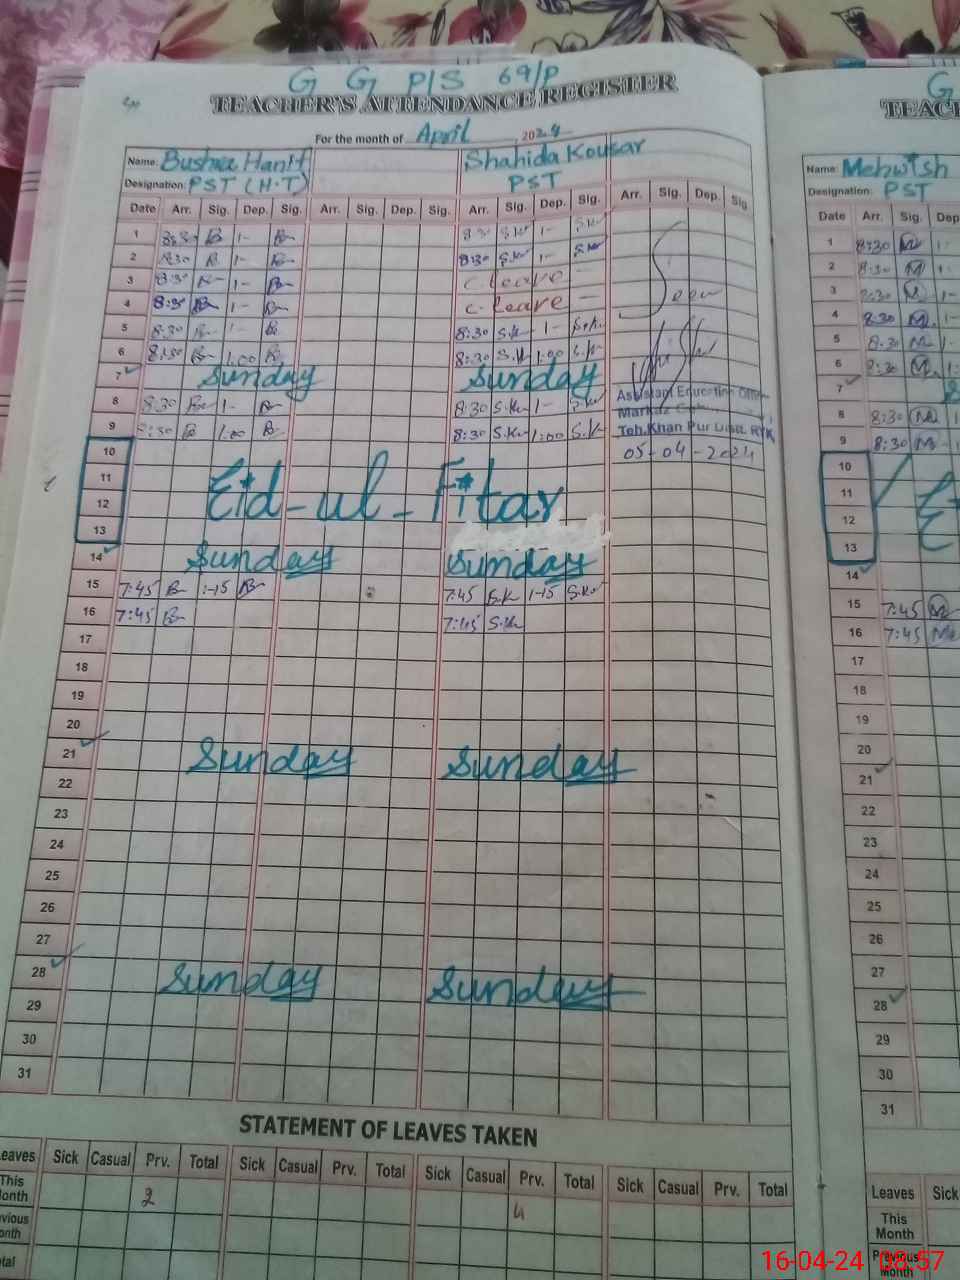 G G P/S 69/P
G
TEACHER'S ATTENDANCE REGISTER
TEAC
For the month of April , 2024
Name: Bushra Hanif Shahida Kousar
Designation: PST (H.T) PST
Name: Mehwish
Designation: PST
Date Arr. Sig. Dep. Sig. Arr. Sig. Dep. Sig. Arr. Sig. Dep. Sig. Arr. Sig. Dep. Sig.
Date Arr. Sig. Dep
1 8:30 B 1- B 8:30 S.K 1- S.K
2 8:30 B 1- B 8:30 S.K 1- S.K
3 8:30 B 1- B C. leave -
4 8:30 B 1- B C. leave -
Seen
5 8:30 B 1- B 8:30 S.K 1- S.K
6 8:30 B 1.00 B 8:30 S.K 1:00 S.K
7 Sunday Sunday
8 8:30 B 1- B 8:30 S.K 1- S.K
Assistant Education Officer
Markaz
9 8:30 B 1.00 B 8:30 S.K 1:00 S.K
Teh. Khan Pur Distt. RYK
05-04-2024
10
11 Eid-ul-Fitar
12
13
14 Sunday Sunday
15 7:45 B 1-15 B 7:45 S.K 1-15 S.K
16 7:45 B 7:45 S.K
17
18
19
20
21 Sunday Sunday
22
23
24
25
26
27
28 Sunday Sunday
29
30
31
1 8:30 M 1-
2 8:30 M 1-
3 8:30 M 1-
4 8:30 M 1-
5 8:30 M 1-
6 8:30 M 1:
7
8 8:30 M 1-
9 8:30 M 1-
10
11
12
13
14
15 7:45 M
16 7:45 M
17
18
19
20
21
22
23
24
25
26
27
28
29
30
31
STATEMENT OF LEAVES TAKEN
Leaves Sick Casual Prv. Total Sick Casual Prv. Total Sick Casual Prv. Total Sick Casual Prv. Total
This Month 2 4
Previous Month
Total
Leaves Sick
This Month
Previous Month
16-04-24 08:57